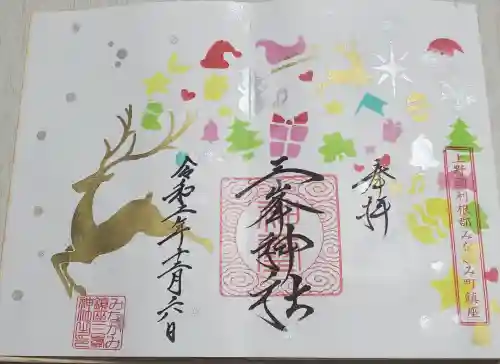 上野國利根郡みなかみ町鎮座
奉拝
三峯神社
令和二年十二月六日
みなかみ